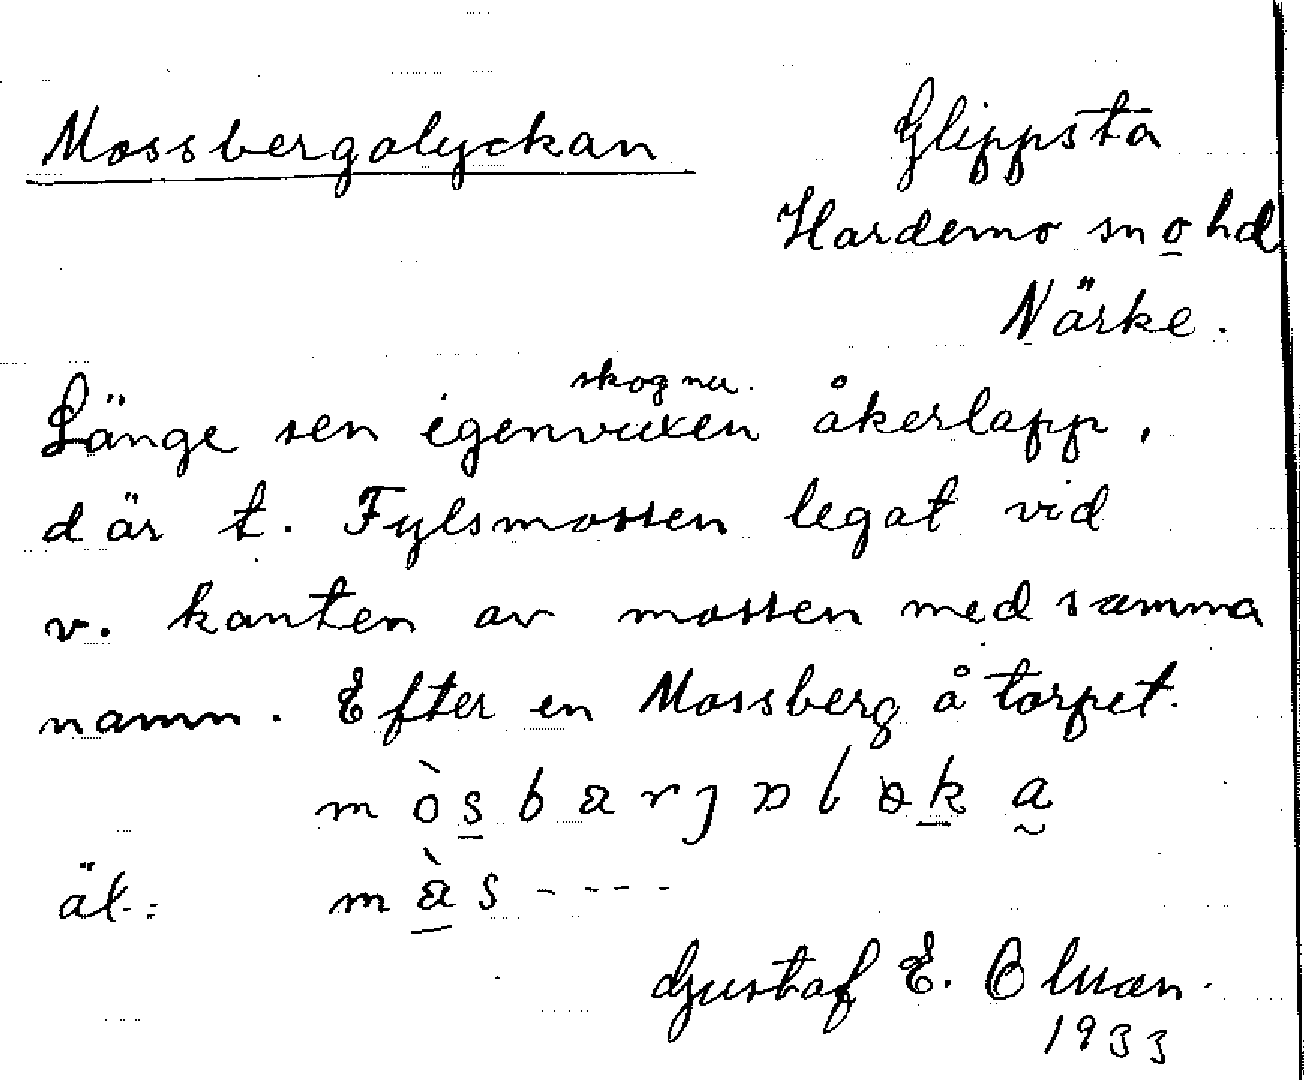 Mossbergalyckan
Glippsta
Hardemo sn o hd
Närke.
skogna.
Länge sen igenvuxen åkerlapp,
där t. Fylsmossen legat vid
v. kanten av mossen med samma
namn. Efter en Mossberg å torpet.
ät.:
Gustaf E.
1933